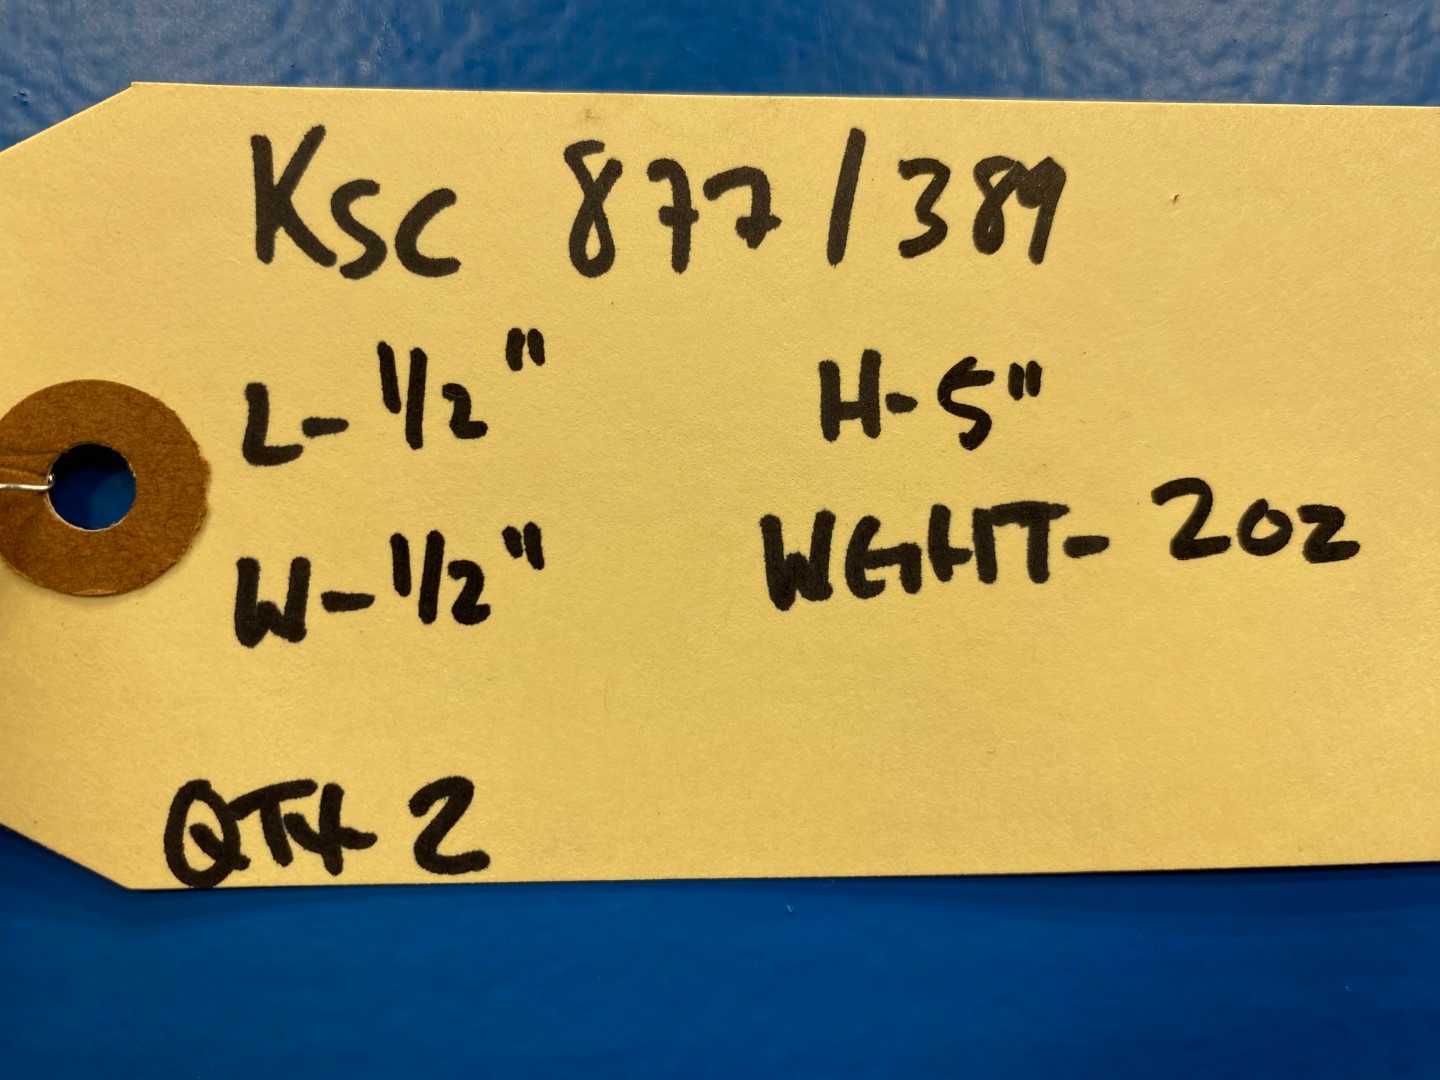 KSC 877/389
L-1/2" H-5"
W-1/2" WGHT- 2oz
QTY 2